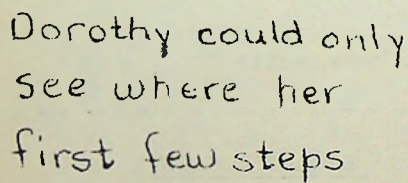 Dorothy could only
see where her
first few steps